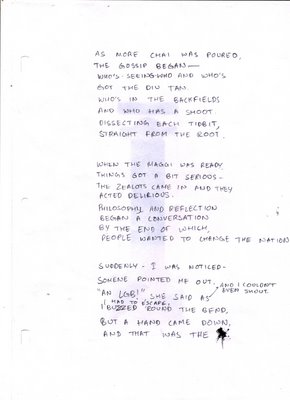 AS MORE CHAI WAS POURED,
THE GOSSIP BEGAN—
WHO'S-SEEING-WHO AND WHO'S
GOT THE DIU TAN.
WHO'S IN THE BACKFIELDS
AND WHO HAS A SHOOT
DISSECTING EACH TIDBIT,
STRAIGHT FROM THE ROOT.
WHEN THE MAGGI WAS READY
THINGS GOT A BIT SERIOUS-
THE ZEALOTS CAME IN AND THEY
ACTED DELIRIOUS.
PHILOSOPHY AND REFLECTION
BEGAN A CONVERSATION
BY THE END OF WHICH,
PEOPLE WANTED TO CHANGE THE NATION
SUDDENLY- I WAS NOTICED-
SOMEONE POINTED ME OUT.
"AN LGB!" SHE SAID AS
AND I COULDN'T
EVEN SHOUT.
I HAD TO ESCAPE,
I BUZZED 'ROUND THE BEND,
BUT A HAND CAME DOWN,
AND THAT WAS THE